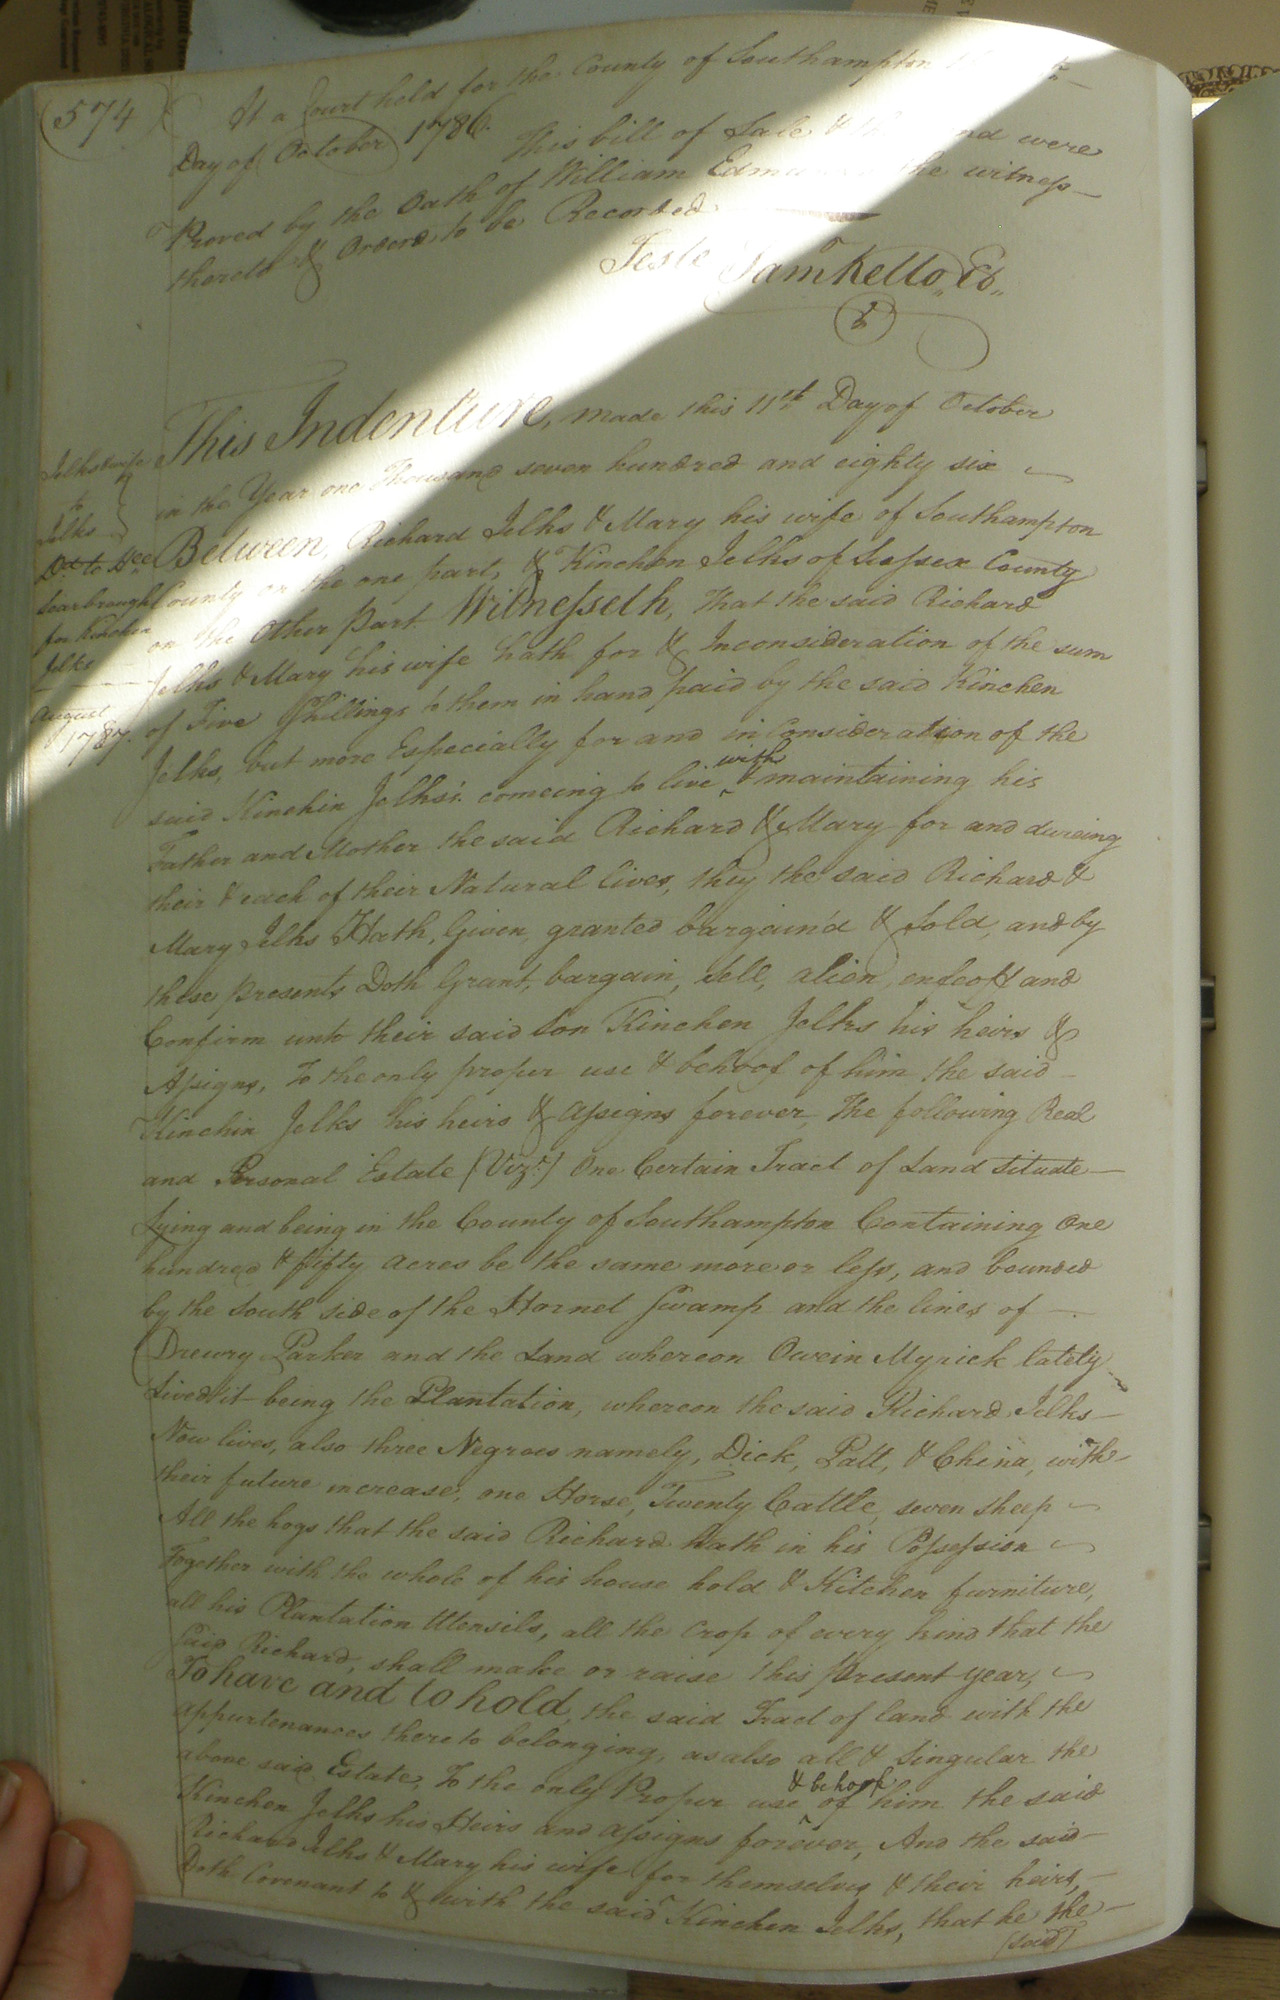 574
At a Court held for the County of Southampton
Day of October 1786.
This bill of Sale & were
Proved by the Oath of William the witness
thereto & Ordered to be Recorded
Teste Sam Kello, Ct,,
This Indenture, made this 11th Day of October
in the Year one Thousand seven hundred and eighty six
Jelks & wife
to
Jelks
Between, Richard Jelks & Mary his wife of Southampton
Dd to
Scarbrough
for Kinchen
Jelks
August
1787.
County on the one part, & Kinchen Jelks of Sussex County
on the Other Part Witnesseth, that the said Richard
Jelks & Mary his wife hath for & Inconsideration of the sum
of Five Shillings to them in hand paid by the said Kinchen
Jelks, but more Especially for and in Consideration of the
said Kinchin Jelks's comeing to live with & maintaining his
Father and Mother the said Richard & Mary for and dureing
their & each of their Natural lives, they the said Richard &
Mary Jelks Hath, Given, granted bargain'd & Sold, and by
these presents Doth Grant, bargain, sell, alien, enfeoff and
Confirm unto their said Son Kinchen Jelks his heirs &
Assigns, To the only proper use & behoof of him the said
Kinchin Jelks his heirs & assigns forever, The following Real
and Personal Estate (Vizt.) One Certain Tract of Land situate
Lying and being in the County of Southampton Containing One
hundred & fifty acres be the same more or less, and bounded
by the South side of the Hornet Swamp and the lines of
Drewry Parker and the Land whereon Owein Myrick lately
Lived it being the Plantation, whereon the said Richard Jelks
Now lives, also three Negroes namely, Dick, Patt, & China, with
their future increase, one Horse, Twenty Cattle, seven sheep
All the hogs that the said Richard hath in his Possession
Together with the whole of his house hold & Kitchen furniture,
all his Plantation Utensils, all the Crop of every kind that the
Said Richard, shall make or raise this present year,
To have and to hold, the said Tract of land with the
appurtenances thereto belonging, as also all & Singular the
above said Estate, To the only Proper use & behoof of him the said
Kinchen Jelks his Heirs and assigns forever, And the said
Richard Jelks & Mary his wife for themselves & their heirs,
Doth Covenant to & with the said Kinchen Jelks, that he the
(said)